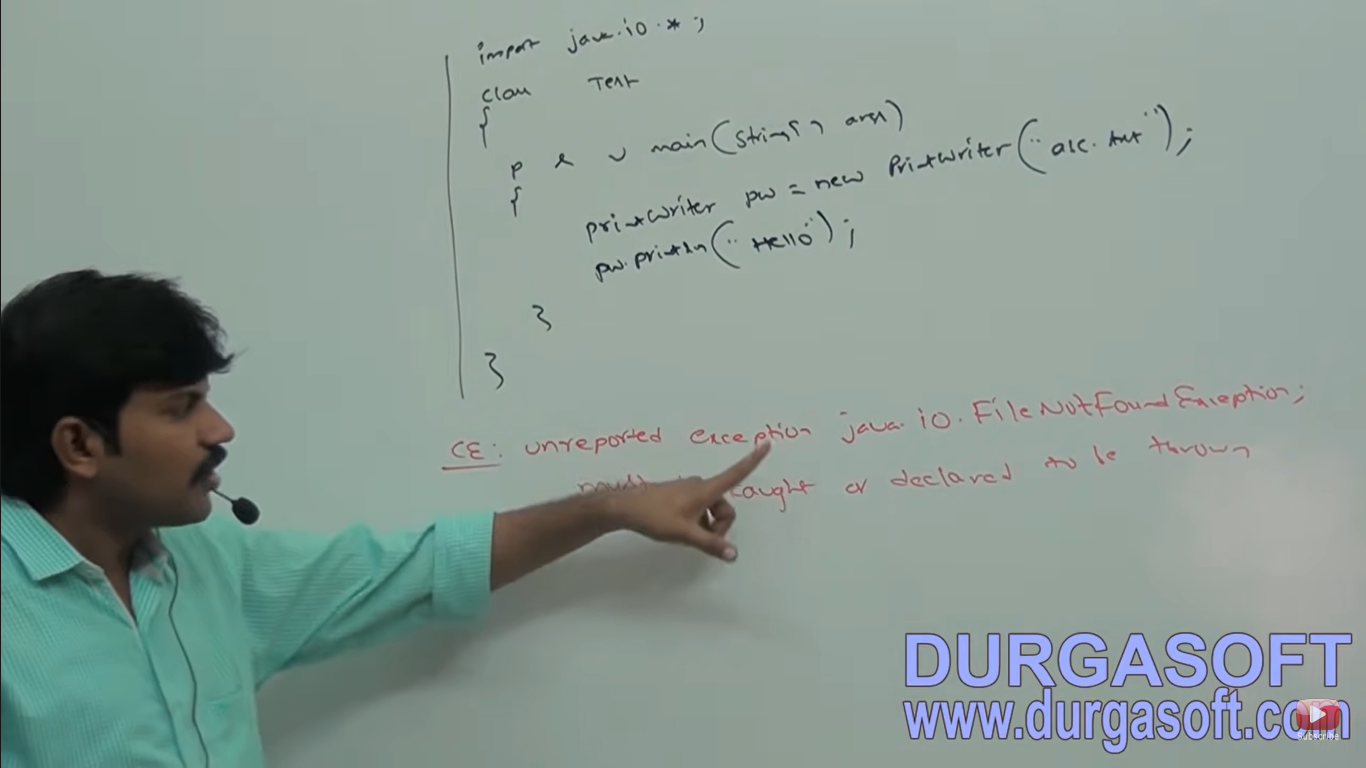 import java.io.*;
class Test
{
p s v main(String[] args)
{
PrintWriter pw = new PrintWriter("abc.txt");
pw.println("Hello");
}
}
CE: unreported exception java.io.FileNotFoundException;
must caught or declared to be thrown
DURGASOFT
www.durgasoft.com
Subscribe